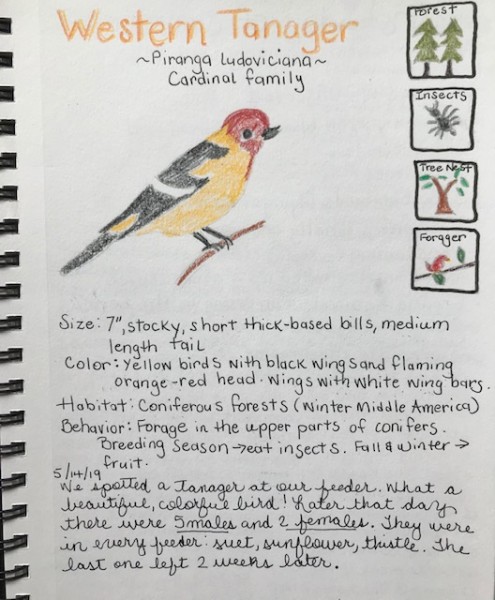 Western Tanager
~Piranga Ludoviciana~
Cardinal family
Forest
Insects
Tree Nest
Forager
Size: 7", stocky, short thick-based bills, medium
length tail
Color: Yellow birds with black wings and flaming
orange-red head. Wings with white wing bars.
Habitat: Coniferous forests (Winter Middle America)
Behavior: Forage in the upper parts of conifers.
Breeding season → eat insects. Fall & Winter →
fruit.
5/14/19
We spotted a Tanager at our feeder. What a
beautiful, colorful bird! Later that day
there were 5 males and 2 females. They were
in every feeder: suet, sunflower, thistle. The
last one left 2 weeks later.